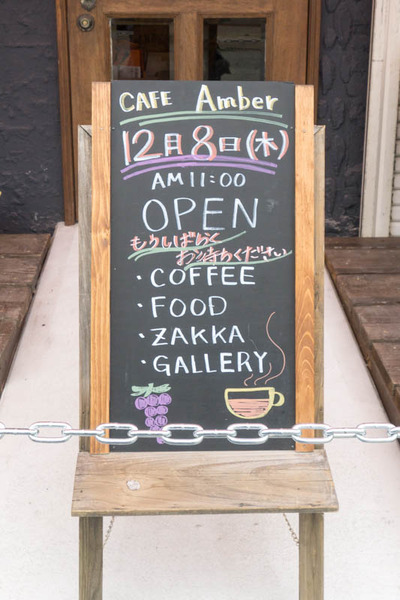 CAFE Amber
12月8日(木)
AM 11:00
OPEN
もうしばらく
お待ちください
・COFFEE
・FOOD
・ZAKKA
・GALLERY